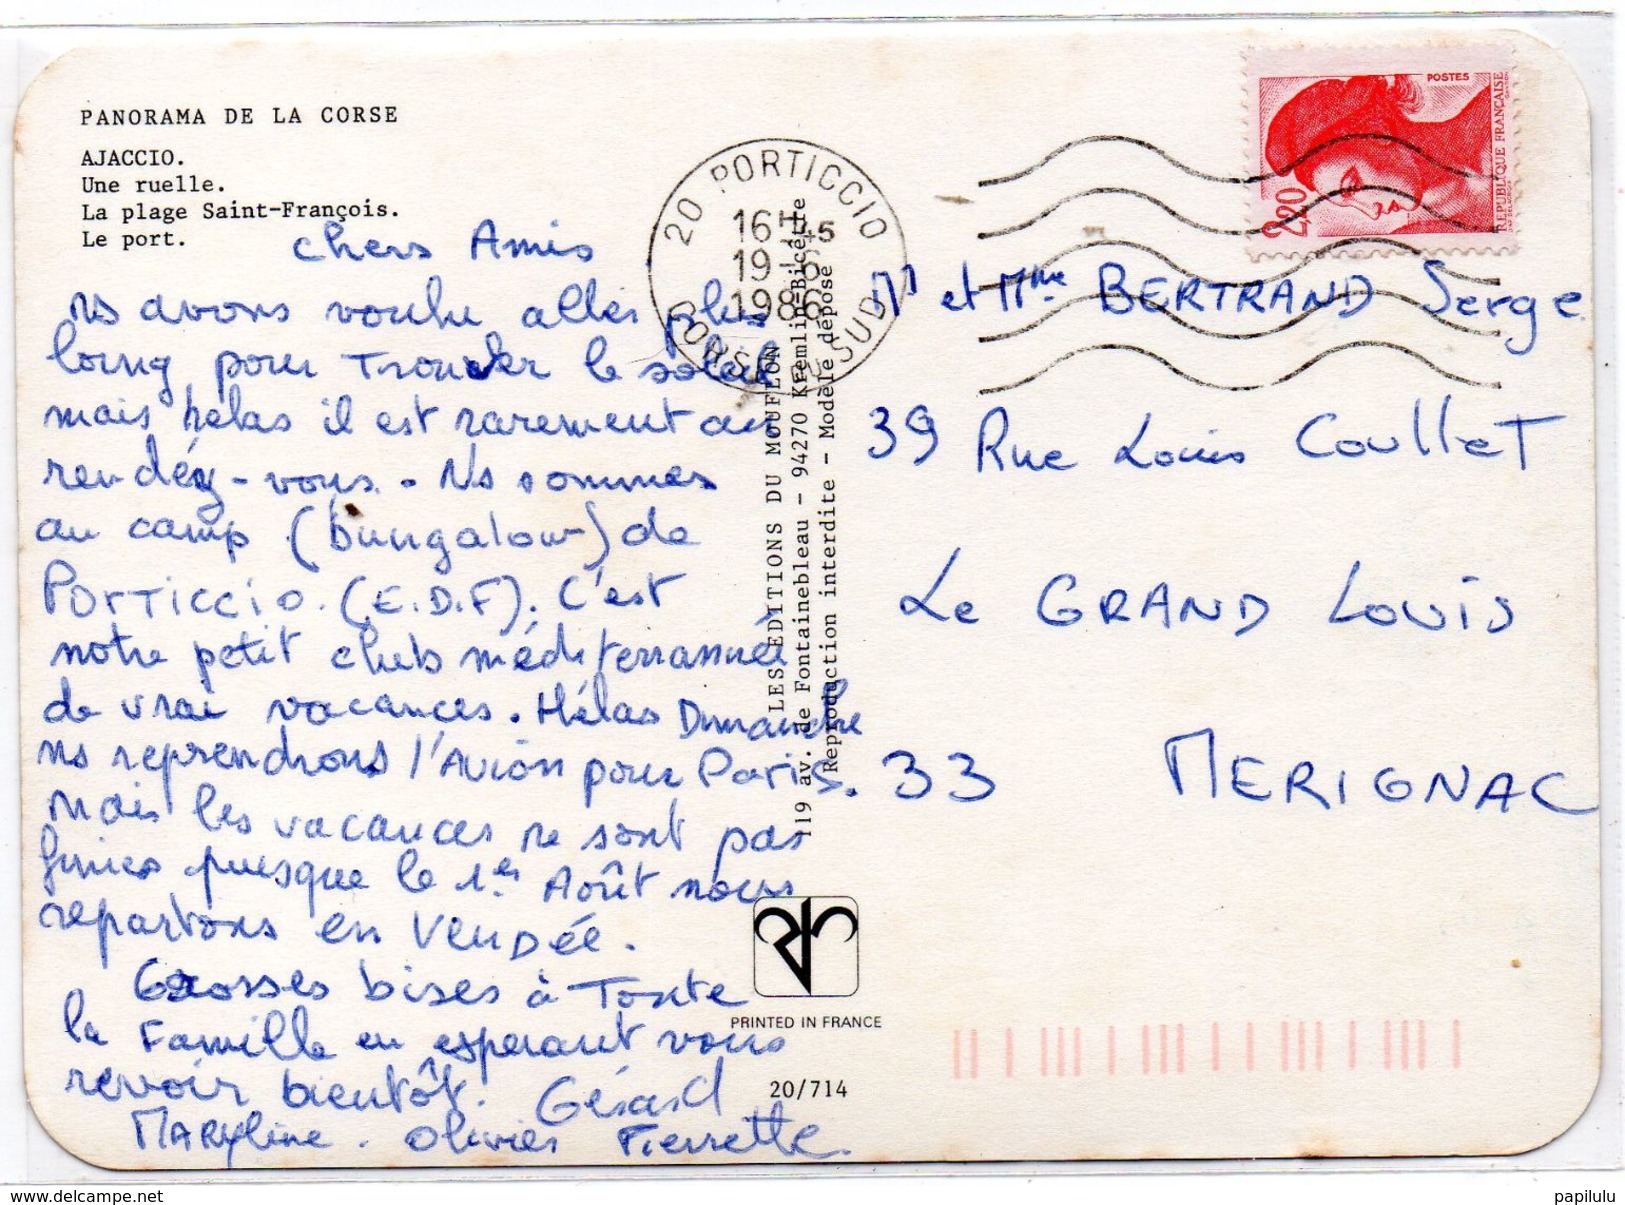 PANORAMA DE LA CORSE
AJACCIO.
Une ruelle.
La plage Saint-François.
Le port.
Chers Amis
ns avons voulu aller plus
loing pour Trouver le soleil
mais hélas il est rarement au
rendéz-vous. Ns sommes
au camp (bungalow) de
PORTICCIO. (E.D.F). C'est
notre petit club méditerrannée
de vrai vacances. Hélas Dimanche
ns reprendrons l'Avion pour Paris.
Mais les vacances ne sont pas
finies puisque le 1er Août nous
repartons en VENDÉE.
Grosses bises à Toute
la Famille en espérant vous
revoir bientôt. Gérard
MARYline. Olivier Pierrette.
LES EDITIONS DU MOUFLON
119 av. de Fontainebleau - 94270 Kremlin-Bicêtre
Reproduction interdite - Modèle déposé
20 PORTICCIO
16H45
19-6
1986
CORSE DU SUD
POSTES
2,20
REPUBLIQUE FRANÇAISE
Mr et Mme BERTRAND Serge
39 Rue Louis Coullet
Le GRAND LOUIS
33 MERIGNAC
PRINTED IN FRANCE
20/714
www.delcampe.net
papilulu